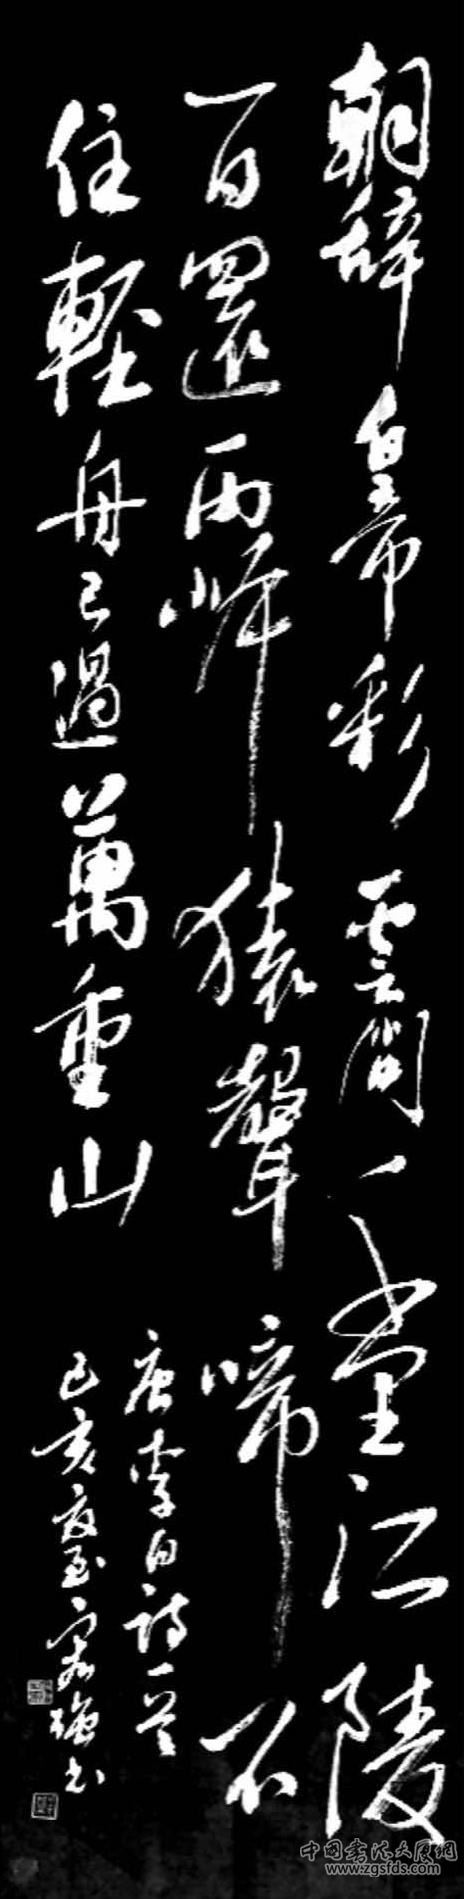 朝辞白帝彩雲間千里江陵
一日還兩岸猿聲啼不
住輕舟已過萬重山
唐李白詩一首
己亥夏至 强书
中国书法大
www.zgsfds.com